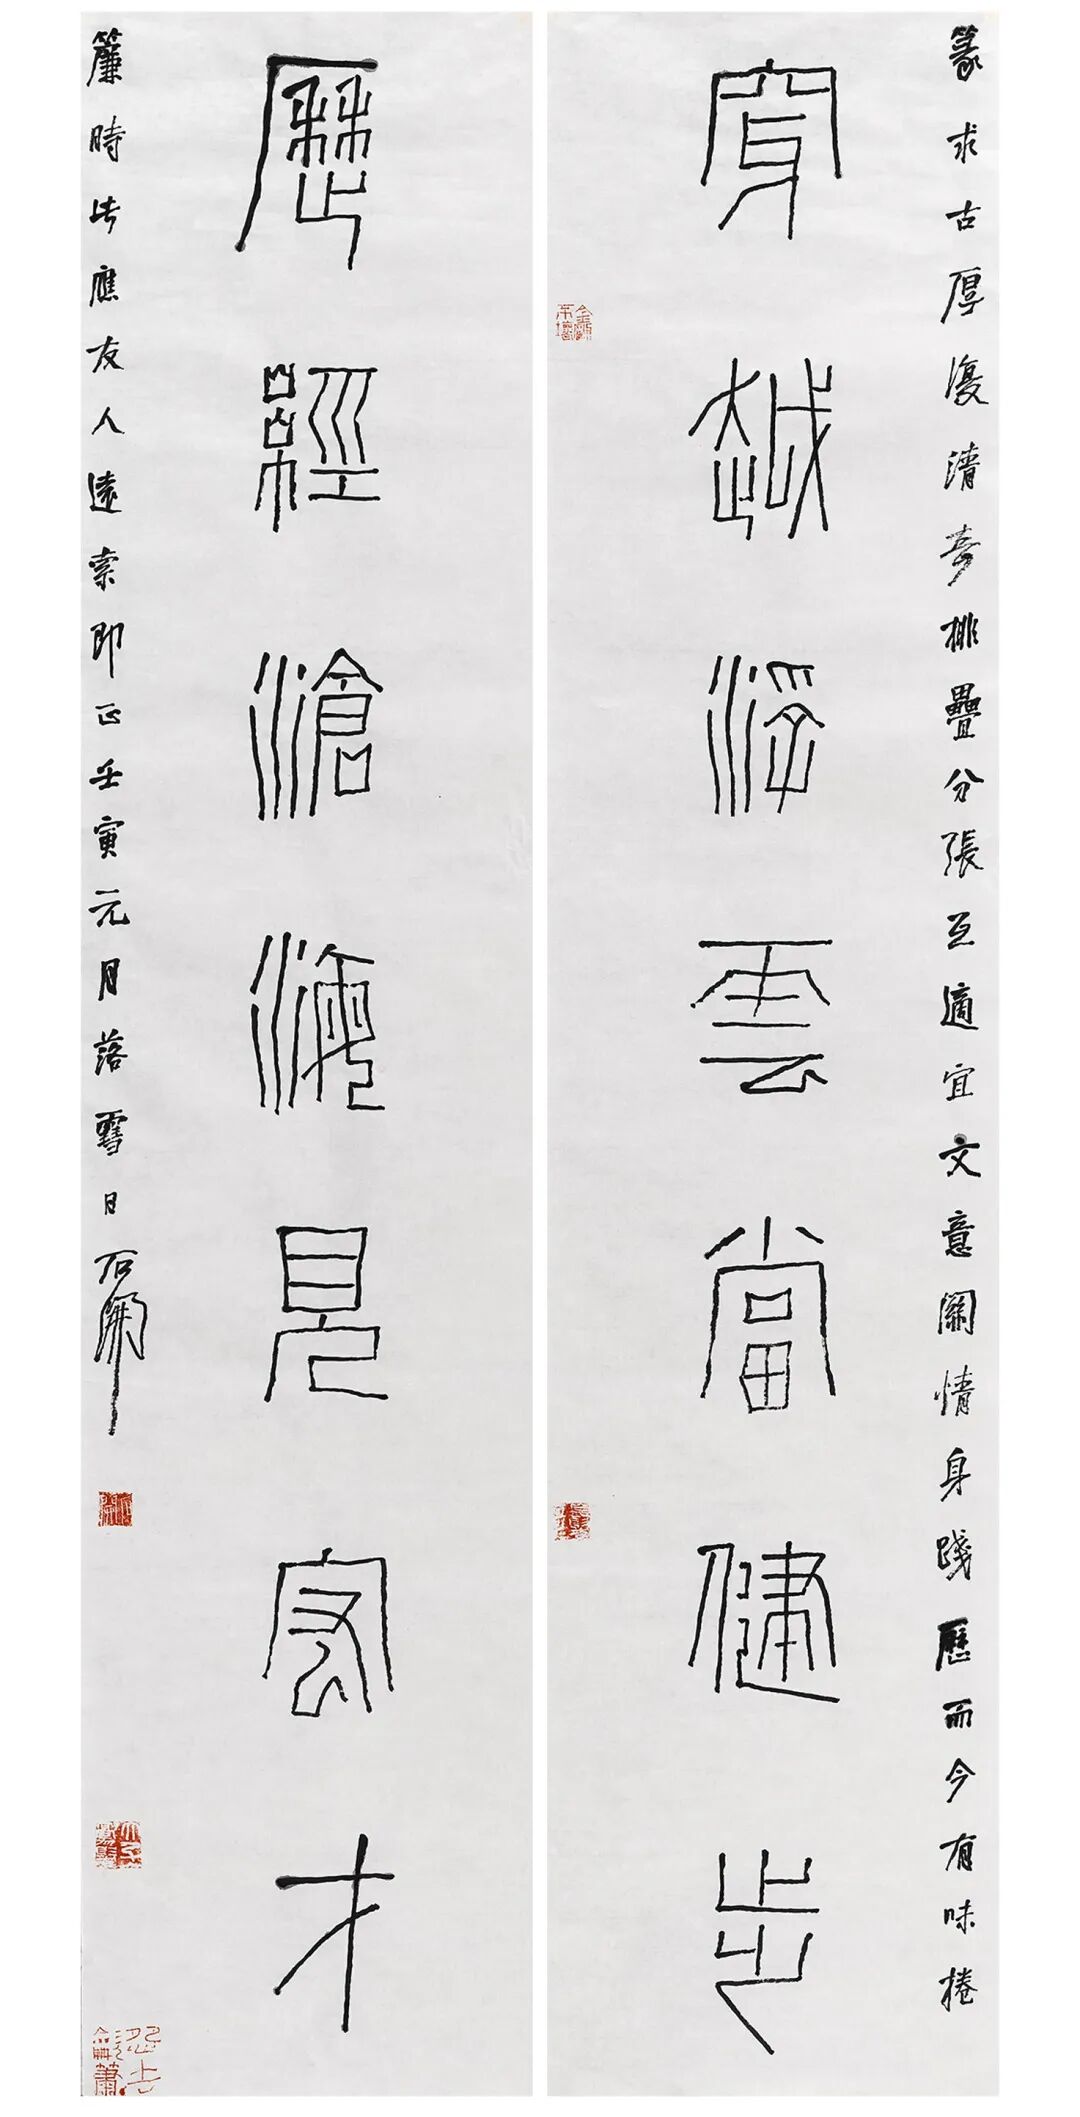 篆求古厚復清奇排疊分張互適宜文意關情身踐歷而今有味捲
穿越浮雲當健步
歷經滄海見宏才
簾時此應友人遠索即正壬寅元月落雪日石開